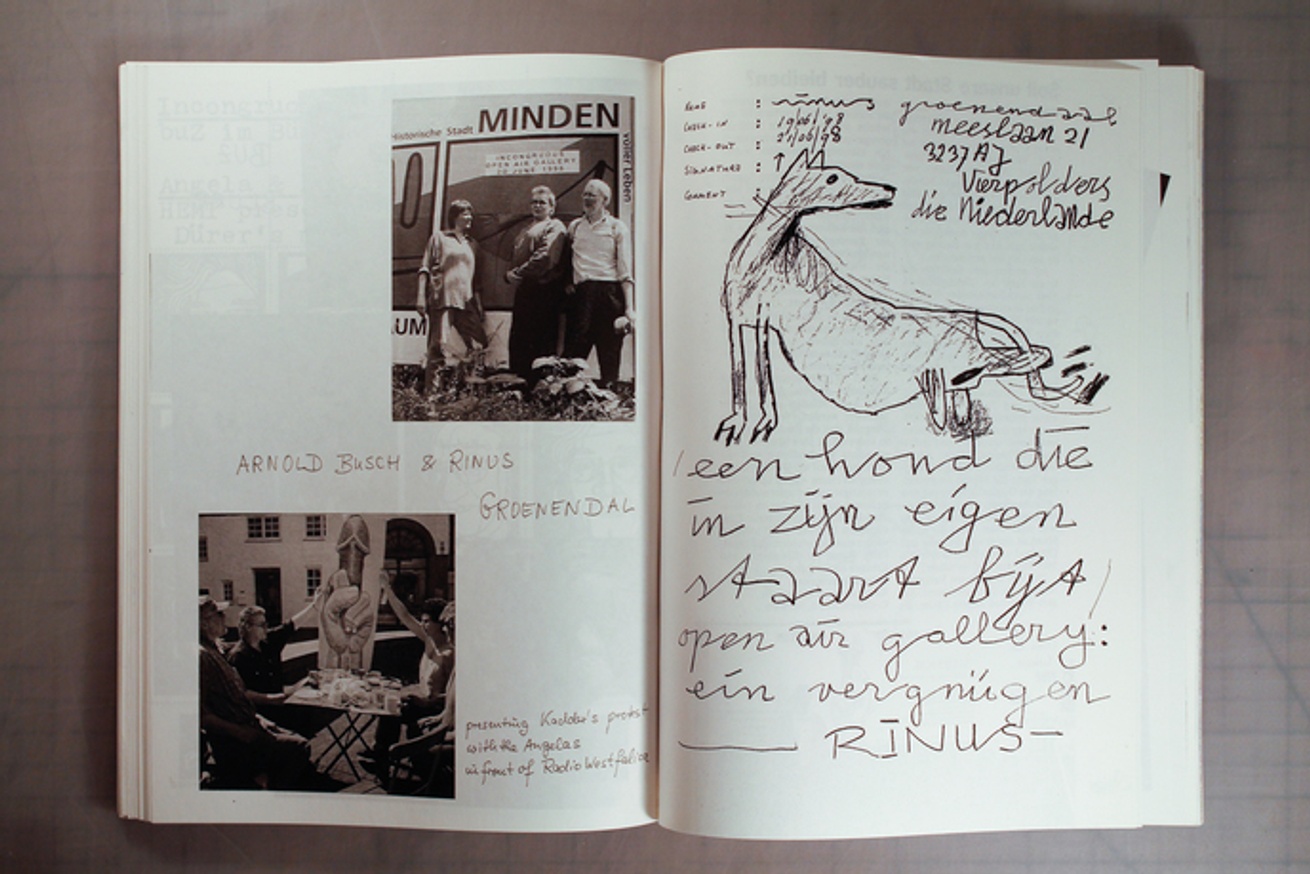 Historische Stadt MINDEN
voller Leben
INCONGRUOUS
OPEN AIR GALLERY
20 JUNE 1998
UM
ARNOLD BUSCH & RINUS
GROENENDAL
presenting Kadobu's protest
with the Angelas
in front of Radio Westfalica
NAME : rinus groenendaal
CHECK-IN : 19/06/98
CHECK-OUT : 21/06/98
SIGNATURE :
COMMENT :
meeslaan 21
3237 AJ
Vierpolders
die Niederlande
/een hond die
in zijn eigen
staart bijt/
open air gallery:
ein vergnügen
RINUS